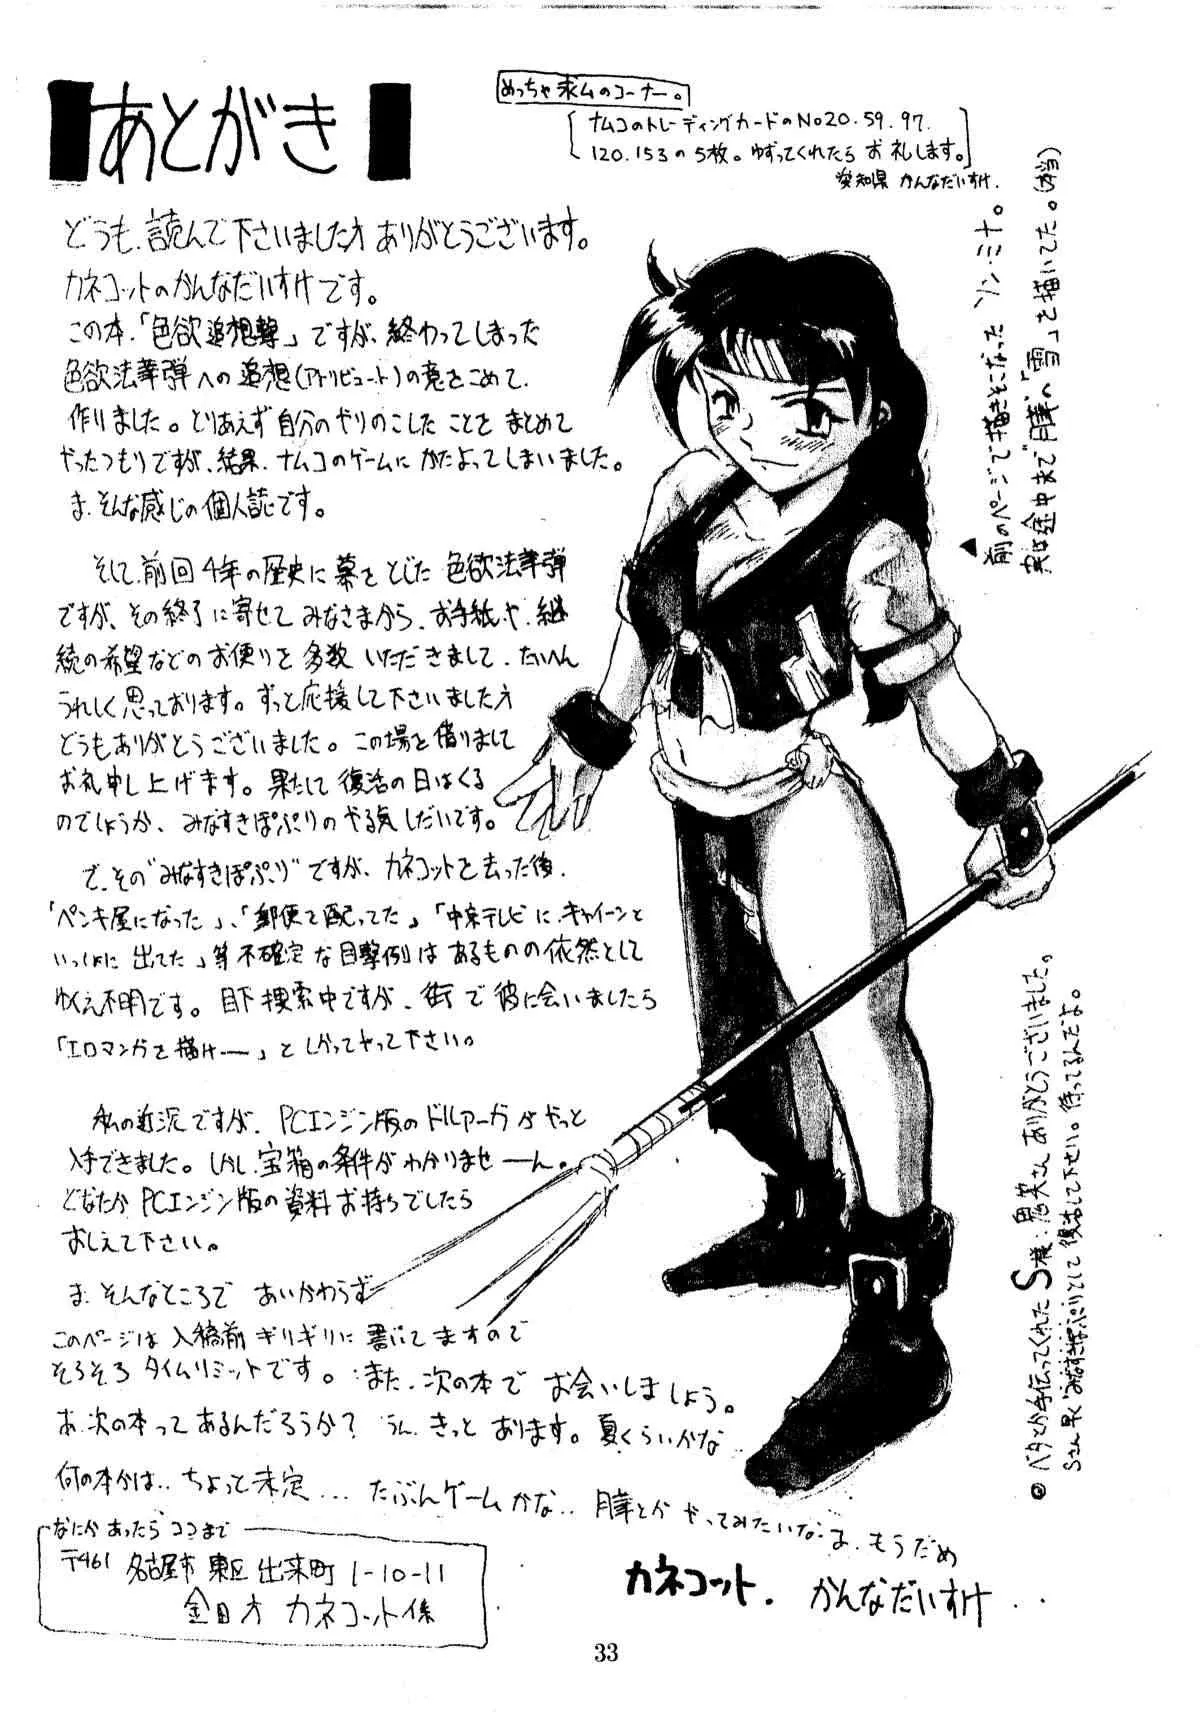 あとがき
めっちゃ求ムのコーナー。
ナムコのトレーディングカードのNo20.59.97.
120.153の5枚。ゆずってくれたら お礼します。
愛知県 かんなだいすけ.
どうも、読んで下さいました方 ありがとうございます。
カネコットのかんなだいすけです。
この本、「色欲追想撃」ですが、終わってしまった
色欲法華弾への追想(アトリビュート)の意をこめて、
作りました。とりあえず自分のやりのこした ことを まとめて
やったつもりですが、結果、ナムコのゲームに かたよってしまいました。
ま、そんな感じの個人誌です。
そして、前回 4年の歴史に幕をとじた 色欲法華弾
ですが、その終了に寄せて みなさまから、お手紙や、継
続の希望などの お便りを 多数 いただきまして、たいへん
うれしく思っております。ずっと応援して下さいました方
どうもありがとうございました。この場を借りまして
お礼申し上げます。果たして 復活の日はくる
のでしょうか、みなすきぽぷりの やる気しだいです。
で、その"みなすきぽぷり"ですが、カネコットを去った後、
「ペンキ屋になった」、「郵便を配ってた」「中京テレビに、キャイーンと
いっしょに 出てた」等 不確定な目撃例は あるものの 依然として
ゆくえ不明です。目下 捜索中ですが、街で 彼に会いましたら
「エロマンガを描けー」と しかってやって下さい。
私の近況ですが、PCエンジン版の ドルアーガが やっと
入手できました。しかし、宝箱の条件が わかりませーん。
どなたか PCエンジン版の 資料 お持ちでしたら
おしえて下さい。
ま、そんなところで あいかわらず
このページは 入稿前 ギリギリに 書いて ますので
そろそろ タイムリミットです。また、次の本で お会いしましょう。
お、次の本って あるんだろうか? うん、きっと あります。夏くらいかな
何の本かは.. ちょっと未定 ... たぶんゲームかな..
なにか あったら ココまで
〒461 名古屋市 東区 出来町 1-10-11
金田方 カネコット係
カネコット. かんなだいすけ..
▲前のページで描きそこなった ソン・ミナ。
実は途中まで"膵"へ「雪」を描いてた。(本当)
◎ベタとか手伝ってくれた S様、恩英さん ありがとうございました。
Sさん 早く みなすきぽぷりとして 復活して下せい。待ってるんだよ。
33